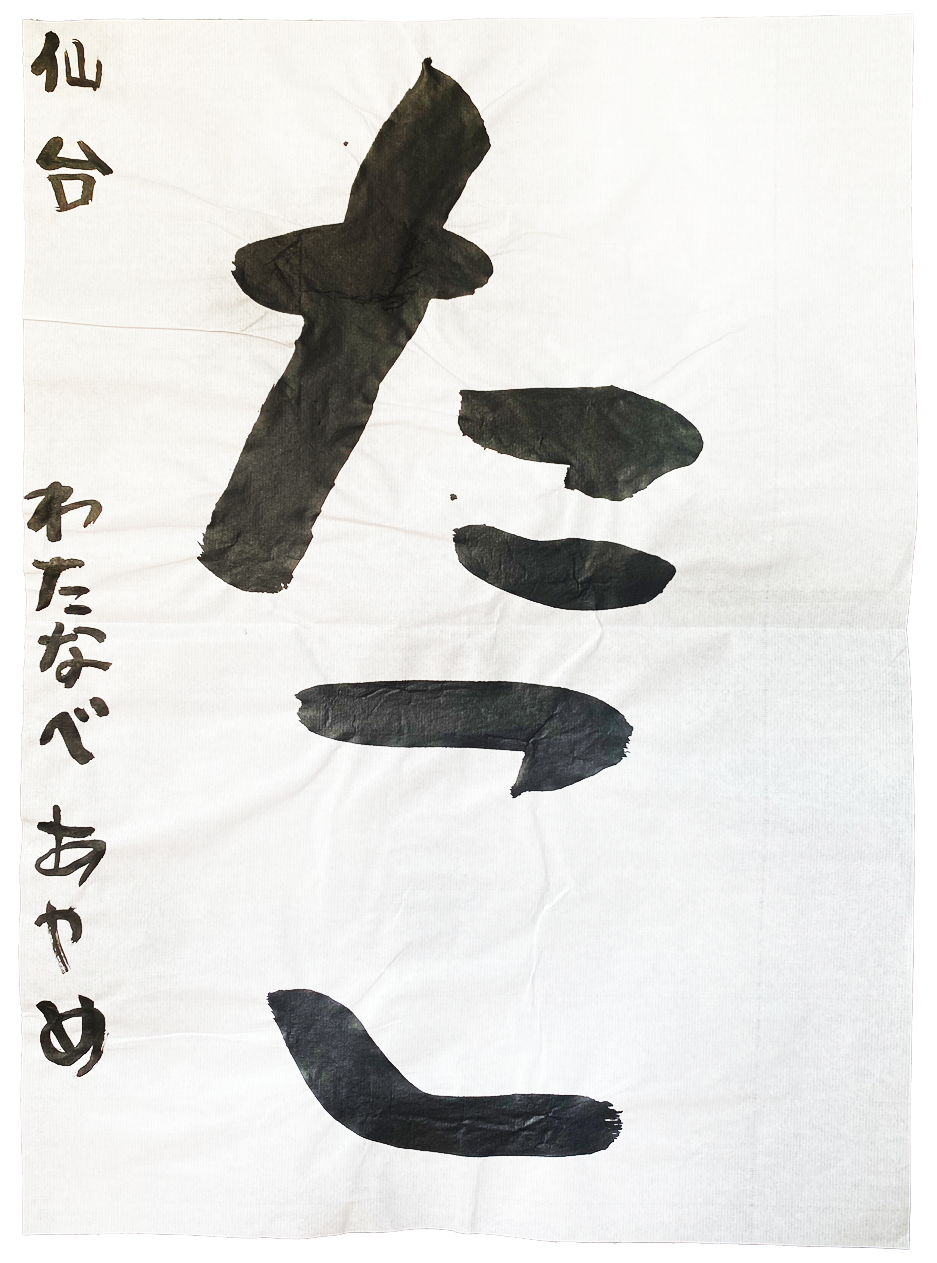 たこ
仙台 わたなべ あやめ